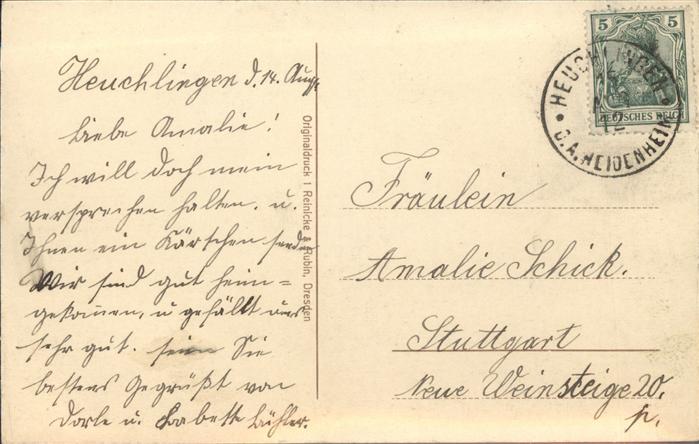 Heuchlingen d. 14. Aug.
Liebe Amalie!
Ich will doch mein
versprechen halten. u.
Ihnen ein Kärtchen senden
Wir sind gut heim=
gekommen, u gefällt uns
sehr gut. seien Sie
bestens Gegrüßt von
Dorle u. Babette Bühler.
Originaldruck v. Reinicke & Rubin, Dresden
5 5
DEUTSCHES REICH
HEUCHLINGEN
O.A. HEIDENHEIM
Fräulein
Amalie Schick.
Stuttgart
Neue Weinsteige 20.
p.